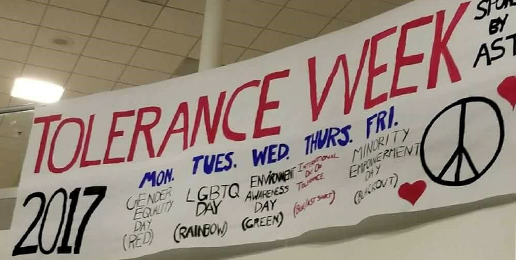 TOLERANCE WEEK
BY
AST
2017
MON.
GENDER
EQUALITY
DAY
(RED)
TUES.
LGBTQ
DAY
(RAINBOW)
WED.
ENVIRONMENT
AWARENESS
DAY
(GREEN)
THURS.
INTERNATIONAL
DAY OF
TOLERANCE
FRI.
MINORITY
EMPOWERMENT
DAY
(BLACKOUT)